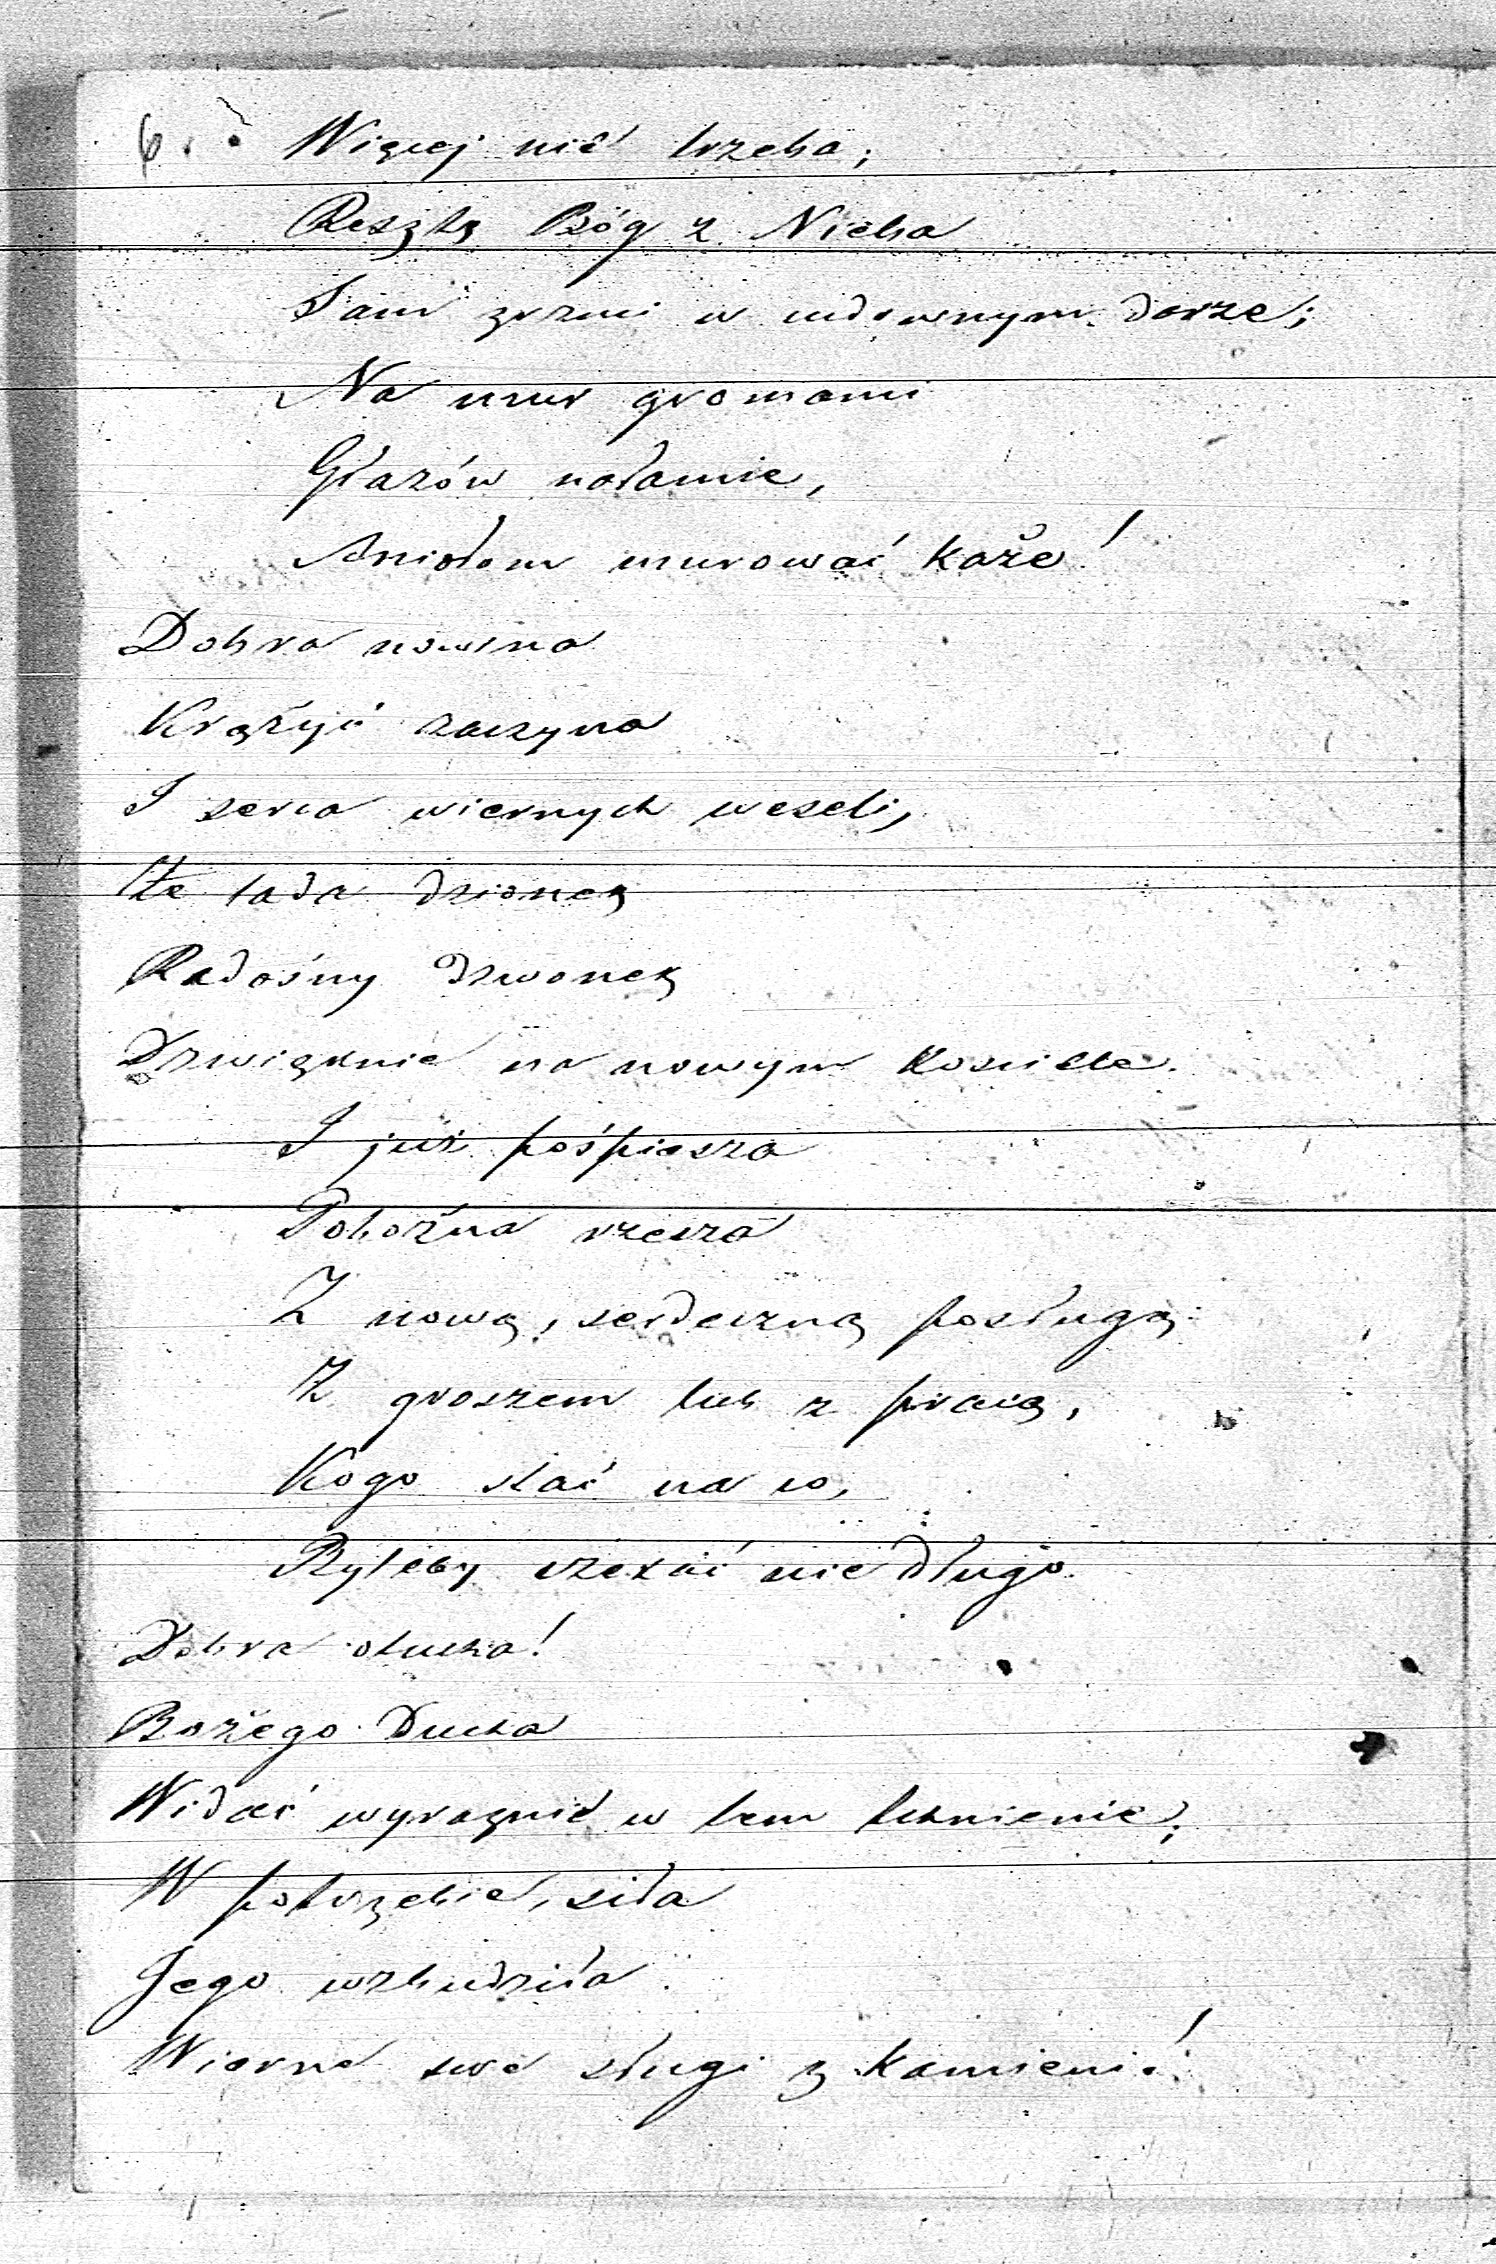 6. Więcej nie trzeba;
Resztę Bóg z Nieba
Sam zrzuci w cudownym darze;
Na mur gromami
Głazów nałamie,
Aniołom murować każe!
Dobra nowina
Krążyć zaczyna
I serca wiernych weseli,
Że lada dzionek
Radośny dzwonek
Dzwięknie na nowym Kościele.
I już pośpiesza
Pobożna rzesza
Z nową, serdeczną posługą:
Z groszem lub z pracą,
Kogo stać na co,
Byleby czekać nie długo.
Dobra otucha!
Bożego Ducha
Widać wyraznie w tem tchnienie;
W potrzebie, siła
Jego wzbudziła
Wierne swe sługi z kamieni!